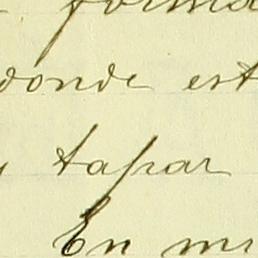 forma
donde est
tapar
En mi